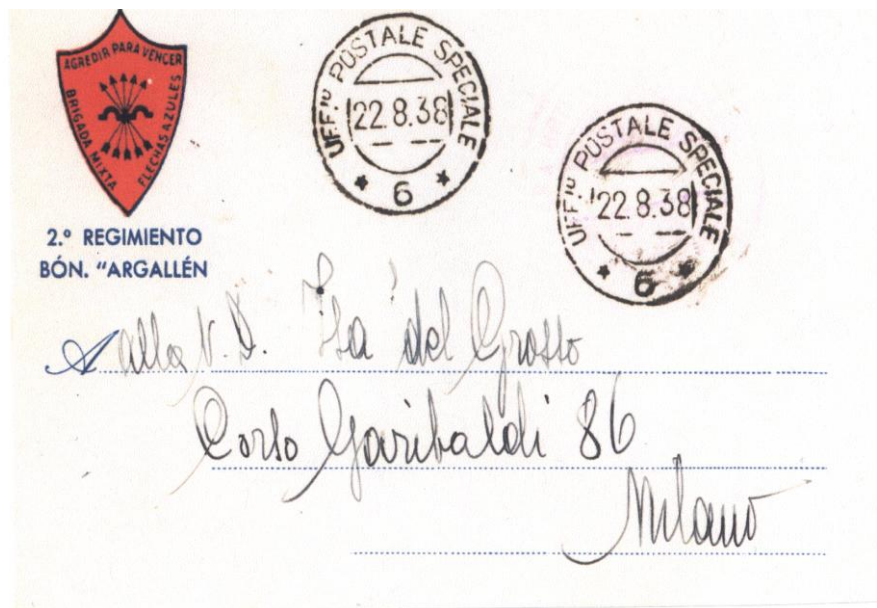 AGREDIR PARA VENCER
BRIGADA MIXTA
FLECHAS AZULES
2.º REGIMIENTO
BÓN. “ARGALLÉN
UFFIO POSTALE SPECIALE
22.8.38
* 6 *
UFFIO POSTALE SPECIALE
22.8.38
* 6 *
A alla N. D. Isa del Grosso
Corso Garibaldi 86
Milano